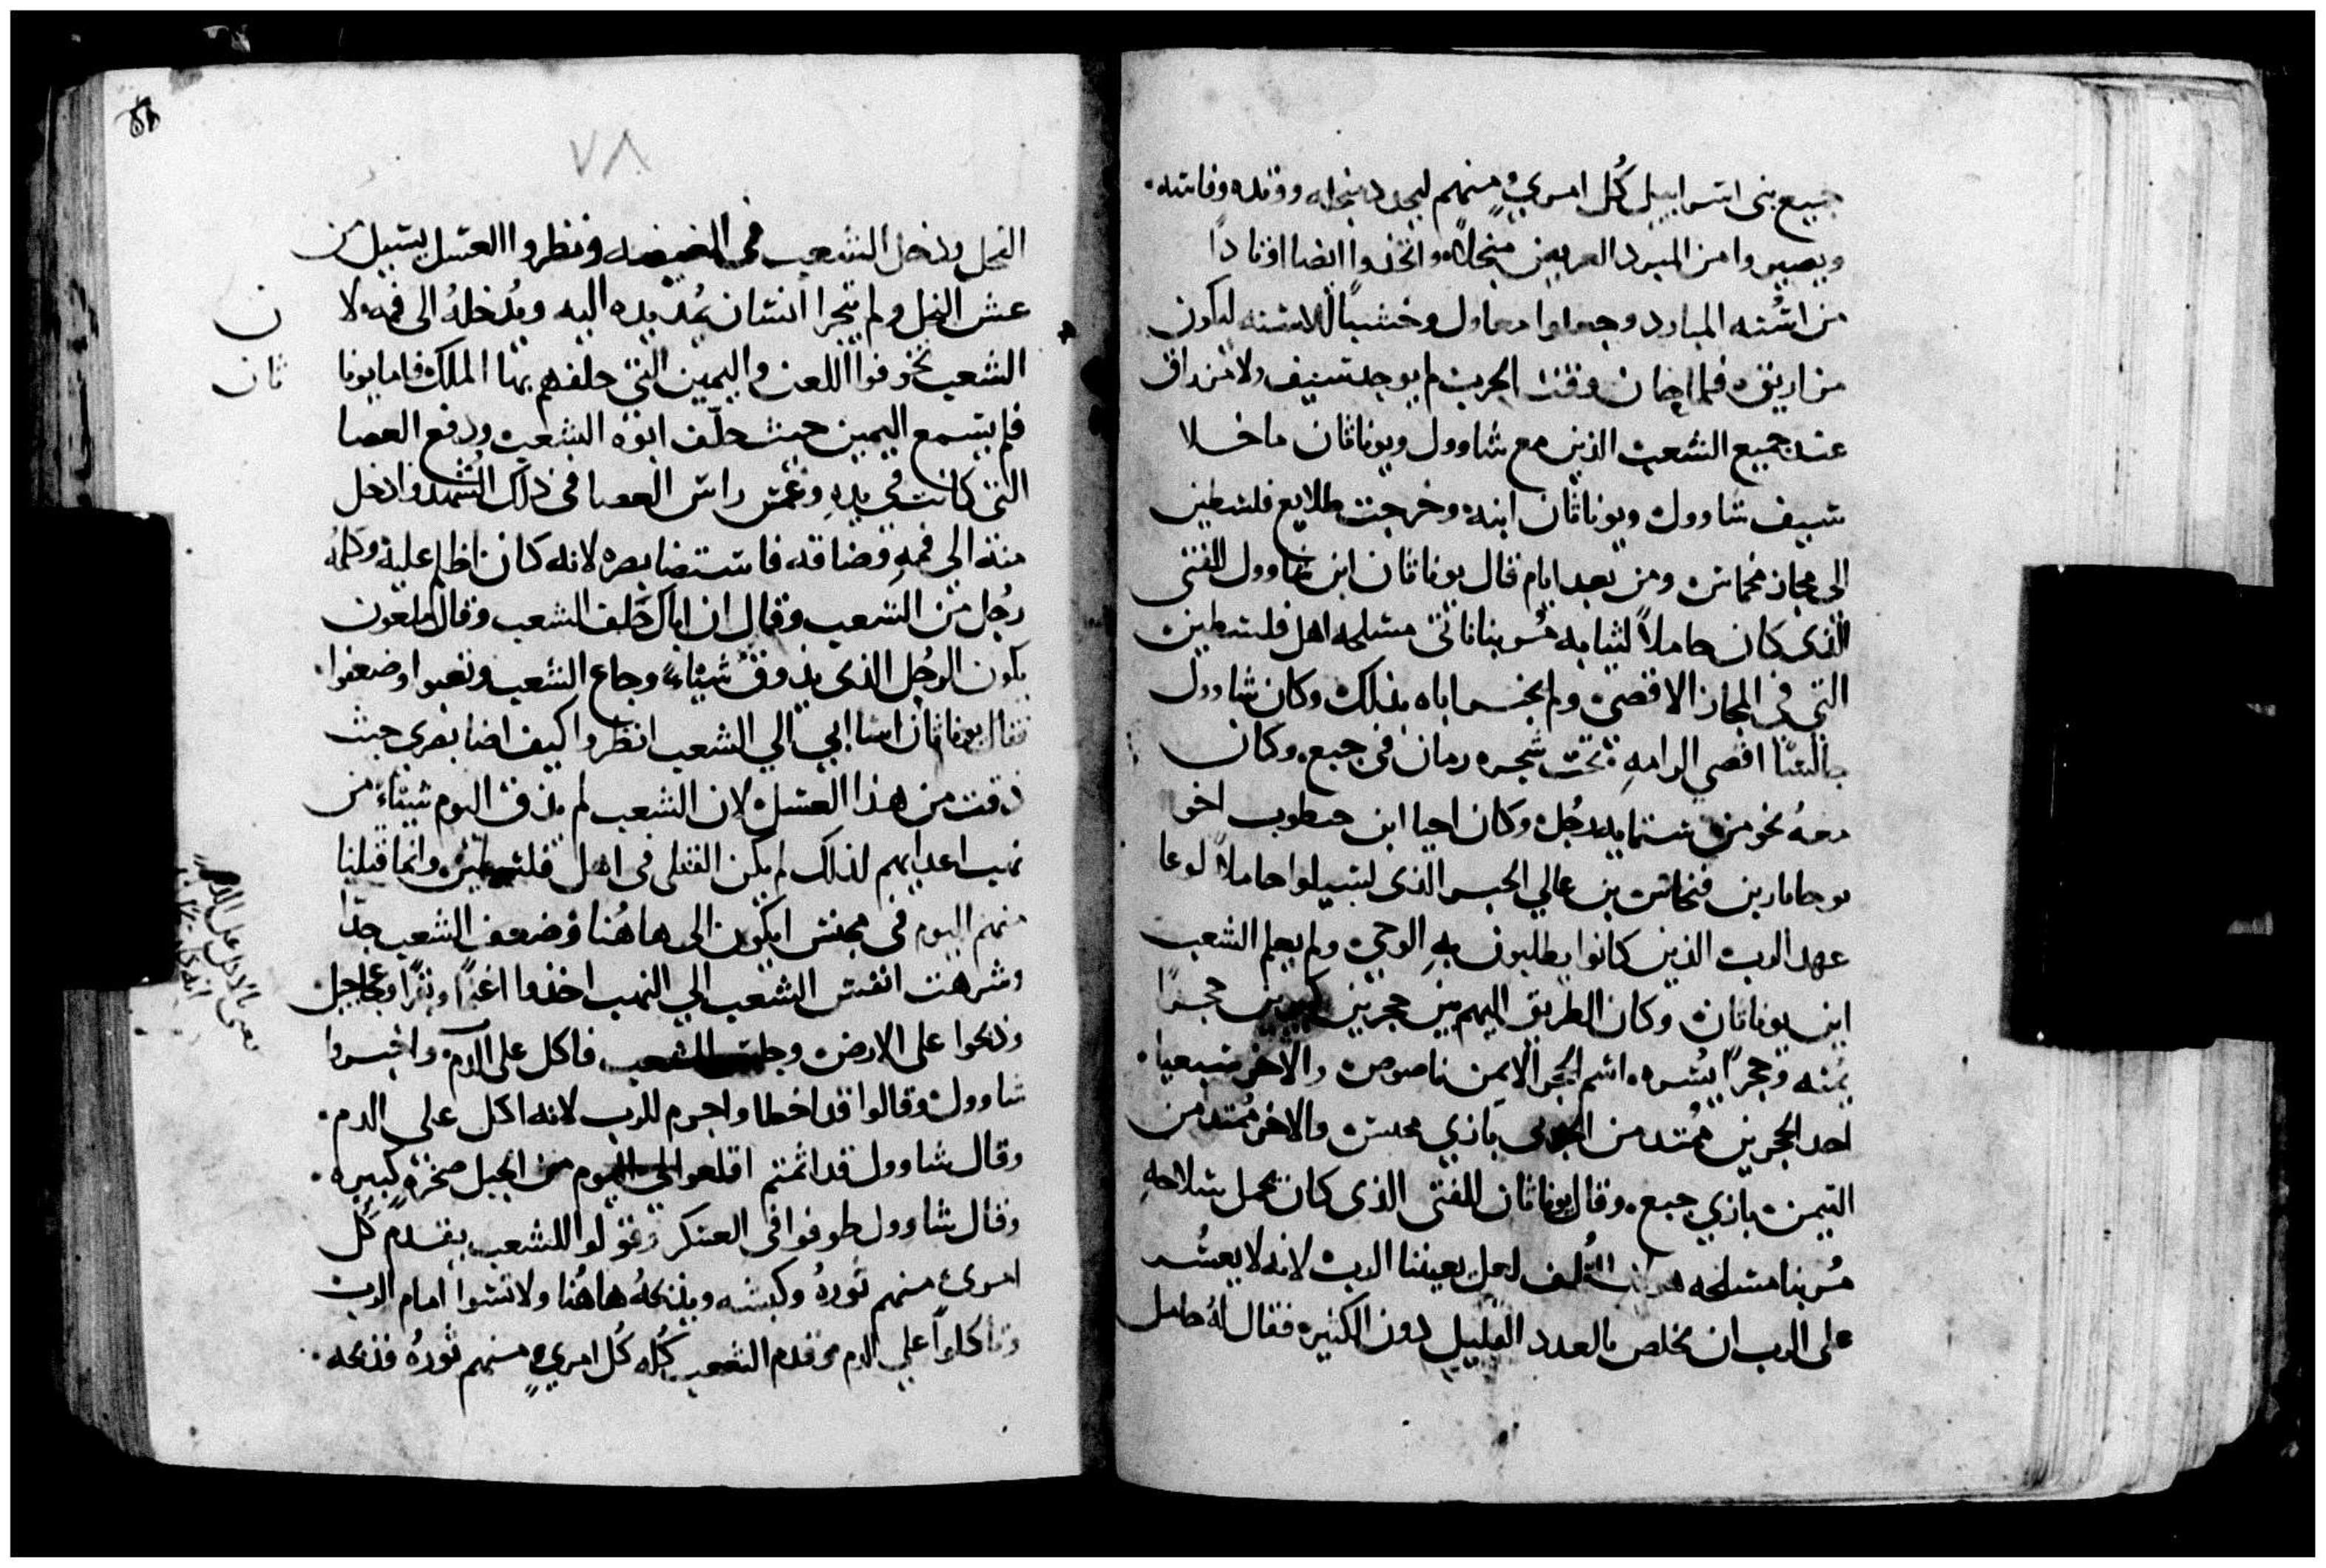 جميع بنى اسراييل كُل امرىٍ منهم ليحدد منجله وفده وفاسه٠
ويصيروا من المبرد العريض منجلاً واتخذوا ايضا اوتاداً
من اسُنه المبارد وجعلوا معاول وخشباً للاسنه ليكون
فلما كان وقت الحرب لم يوجد سيف ولا مزراق
عند جميع الشعب الذين مع شاوول ويوناثان ما خلا
سيف شاوول ويوناثان ابنه وخرجت طلايع فلسطين
الى مجاز مخماس ومن بعد ايام قال يوناثان ابن شاوول للفتى
الذى كان حاملاً لثيابه مُر بنا ناتى مسلحه اهل فلسطين
التى فى المجاز الاقصى ولم يخبر اباه بذلك وكان شاوول
جالسًا اقصى الرامهِ تحت شجره رمان فى جبع٠ وكان
معهُ نحو من ستمايه رجُل وكان احيا ابن حيطوب اخو
يوحامار بن فنحاس بن عالي الحبر الذى لشيلوا حاملاً لوعا
عهد الرب الذين كانوا يطلبون بهِ الوحى ولم يعلم الشعب
اين يوناثان وكان الطريق اليهم بين حجرين كبيرين حجرًا
يمنه وحجراً يسُره٠ اسم الحجر الايمن ناصوص والاخر سبعيا٠
احد الحجرين مُمتد من الجربى بازي محمس والاخر مُمتد من
التيمن بازي جبع٠ وقال يوناثان للفتى الذى كان يحمل سلاحهِ
مُر بنا مسلحه الغُلف لعل يعيننا الرب لانه لا يعسُر
على الرب ان يخلص بالعدد القليل دون الكثيره فقال لهُ حامل
٧٨
النحل ودخل الشعب فى الغيضه ونظروا العسل يسيل من
عش النحل ولم يتجرا انسان يُمد يده اليه ويُدخلهُ الى فمه لا
ن
الشعب تخوفوا اللعن واليمين التى حلفهم بها الملك فاما يونا
ثان
فلم يسمع اليمين حيث حلّف ابوه الشعب ورفع العصا
التى كانت فى يدهِ وغمس راس العصا فى ذلك الشُهد وادخل
منه الى فمهِ فضاقه فاستضا بصره لانه كان اظلم عليه وكلمهُ
رجُل من الشعب وقال ان اباك حَلف الشعب وقال ملعون
يكون الرجُل الذى يذوق شياءً وجاع الشعب وتعبوا وضعفوا٠
فقال يوناثان اسا ابى الى الشعب انظروا كيف اضا بصرى حيث
ذقت من هذا العسل لان الشعب لم يذق اليوم شياءً من
نهب اعدايهم لذلك لم يكن القتلى فى اهل فلسطين وانما قتلنا
منهم اليوم فى مخمس ايكون الى هاهُنا وضعف الشعب جدّا
وشرهت انفس الشعب الى النهب اخذوا اغنماً وبقراً وعجاجيل
وذبحوا على الارض وجلس الشعب فاكل على الدم واخبروا
شاوول وقالوا قد اخطا واجرم للرب لانه اكل على الدم٠
وقال شاوول قد اثمتم اقلعوا الى اليوم من الجبل صخرةٍ كبيره٠
وقال شاوول طوفوا فى العسكر وقولوا للشعب يقدم كُل
امرىُ منهم ثورهُ وكبشه ويذبحهُ هاهُنا ولا تسوا امام الرب
وتاكلوا على الدم وقدم الشعب كُله كُل امرىٍ منهم ثورهُ فذبحه٠